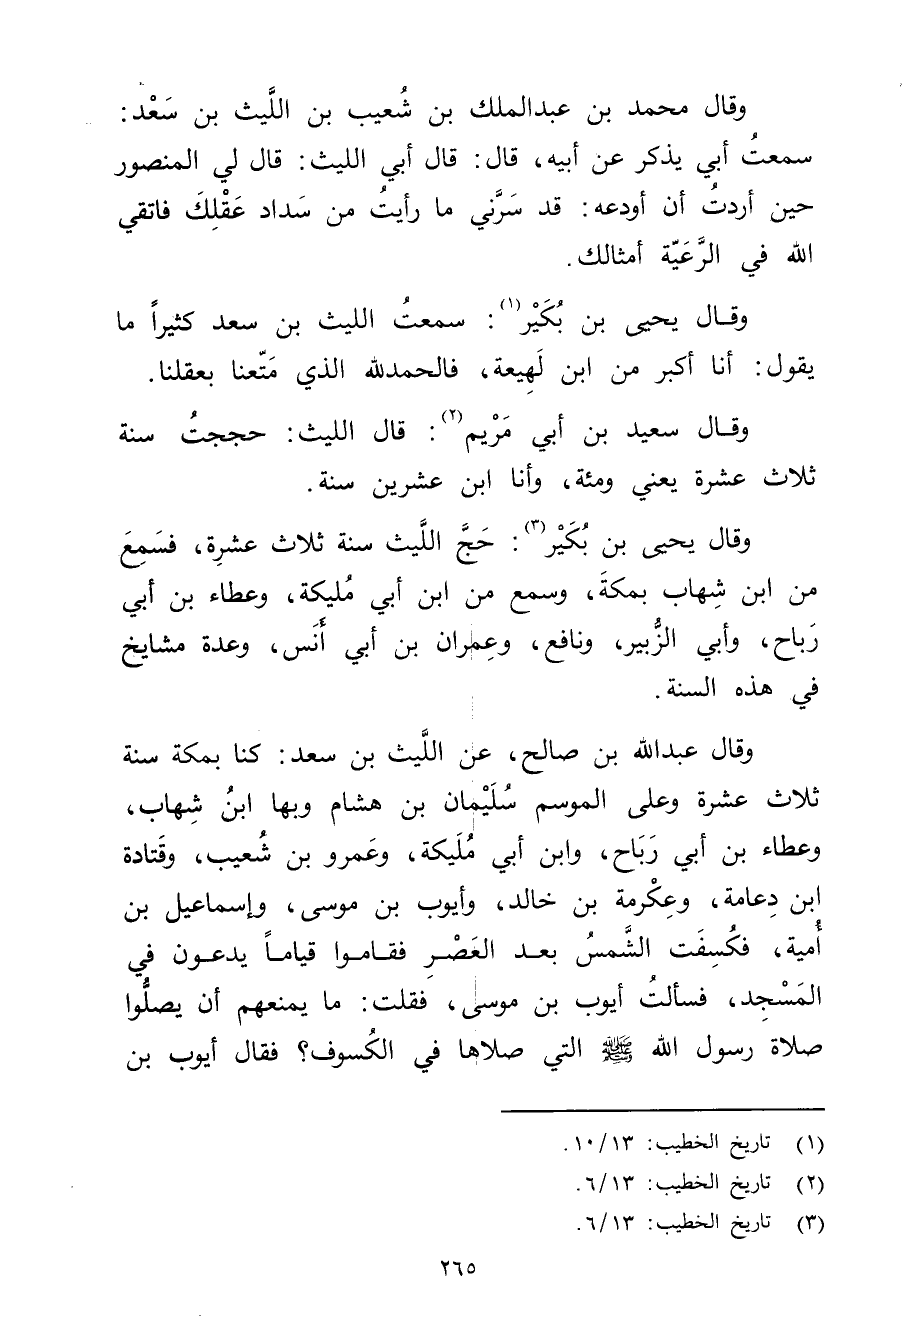 وقال محمد بن عبدالملك بن شُعيب بن اللَّيث بن سَعْد:
سمعتُ أبي يذكر عن أبيه، قال: قال أبي الليث: قال لي المنصور
حين أردتُ أن أودعه: قد سَرَّني ما رأيتُ من سَداد عَقْلِكَ فاتقي
الله في الرَّعَيّة أمثالك.
وقـال يحيى بن بُكَيْر(١): سمعتُ الليث بن سعد كثيراً ما
يقول: أنا أكبر من ابن لَهِيعة، فالحمدلله الذي مَتّعنا بعقلنا.
وقـال سعيد بن أبي مَرْيم(٢): قال الليث: حججتُ سنة
ثلاث عشرة يعني ومئة، وأنا ابن عشرين سنة.
وقال يحيى بن بُكَيْر(٣): حَجَّ اللَّيث سنة ثلاث عشرِة، فسَمِعَ
من ابن شِهاب بمكةَ، وسمع من ابن أبي مُليكة، وعطاء بن أبي
رَباح، وأبي الزُّبير، ونافع، وعِمران بن أبي أَنَس، وعدة مشايخ
في هذه السنة.
وقال عبدالله بن صالح، عن اللَّيث بن سعد: كنا بمكة سنة
ثلاث عشرة وعلى الموسم سُلَيْمان بن هشام وبها ابنُ شِهاب،
وعطاء بن أبي رَبَاح، وابن أبي مُلَيكة، وعَمرو بن شُعيب، وقَتادة
ابن دِعامة، وعِكْرمة بن خالد، وأيوب بن موسى، وإسماعيل بن
أُمية، فكُسِفَت الشَّمسُ بعـد العَصْرِ فقـامـوا قياماً يدعـون في
المَسْجِد، فسألتُ أيوب بن موسى، فقلت: ما يمنعهم أن يصلُّوا
صلاة رسول الله ﷺ التي صلاها في الكُسوف؟ فقال أيوب بن
(١) تاريخ الخطيب: ١٠/١٣.
(٢) تاريخ الخطيب: ٦/١٣.
(٣) تاريخ الخطيب: ٦/١٣.
٢٦٥